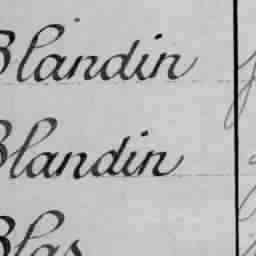 Blandin
Blandin
Blas